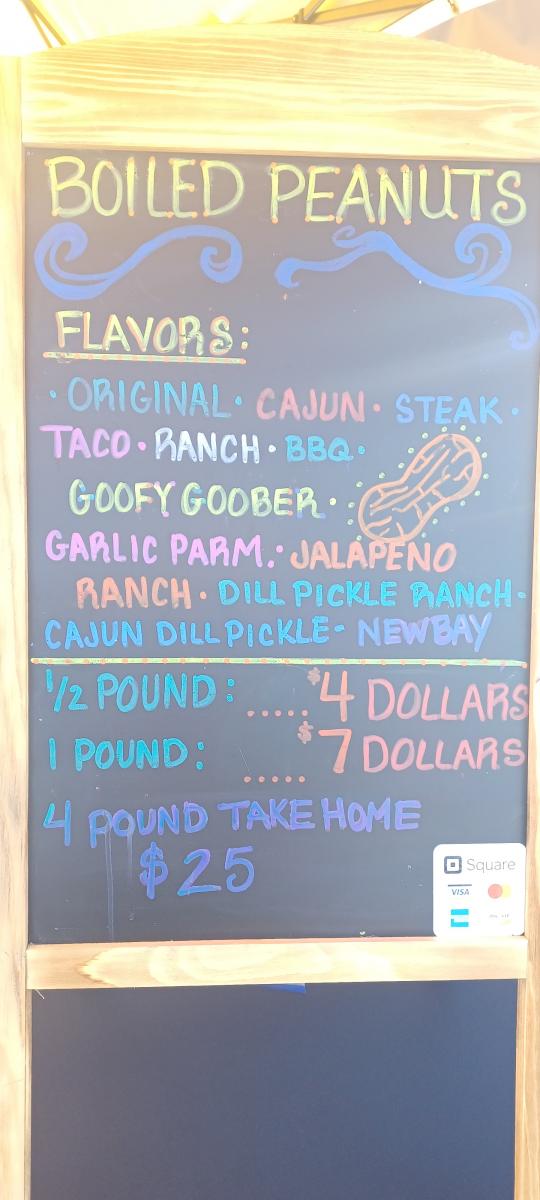 BOILED PEANUTS
FLAVORS:
· ORIGINAL · CAJUN · STEAK ·
TACO · RANCH · BBQ ·
GOOFY GOOBER ·
GARLIC PARM. · JALAPENO
RANCH · DILL PICKLE RANCH -
CAJUN DILL PICKLE - NEWBAY
1/2 POUND: ..... $4 DOLLARS
1 POUND: ..... $7 DOLLARS
4 POUND TAKE HOME
$25
Square
VISA